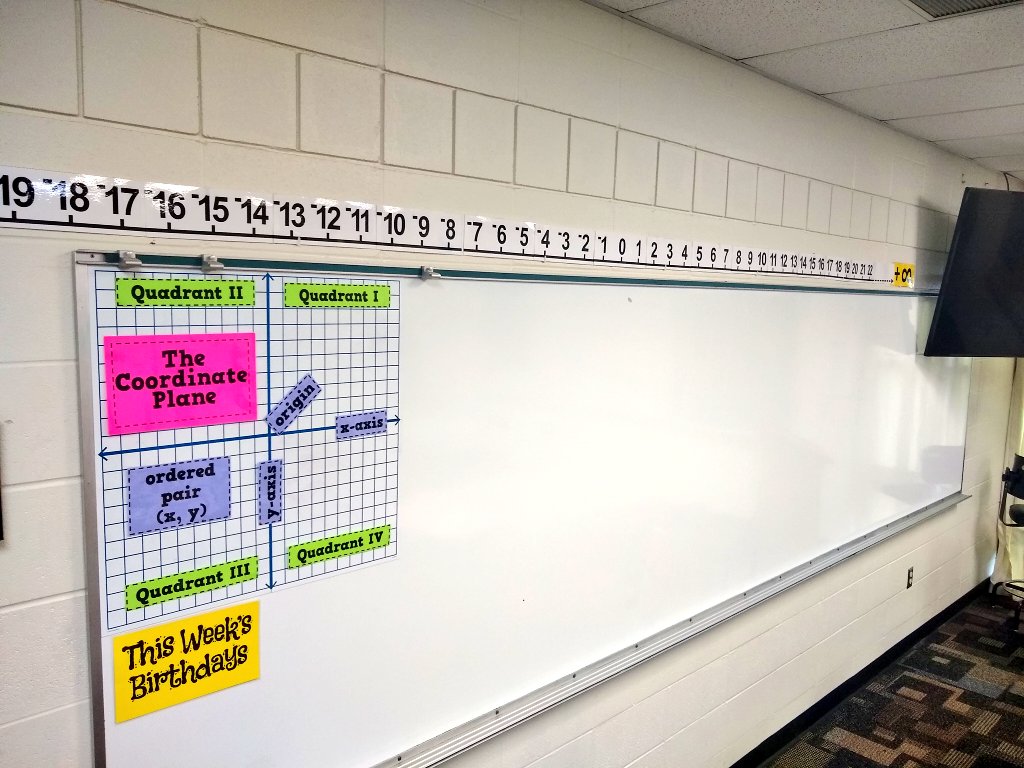 19 -18 -17 -16 -15 -14 -13 -12 -11 -10 -9 -8 -7 -6 -5 -4 -3 -2 -1 0 1 2 3 4 5 6 7 8 9 10 11 12 13 14 15 16 17 18 19 20 21 22 +∞
Quadrant II
Quadrant I
The
Coordinate
Plane
origin
x-axis
ordered
pair
(x, y)
y-axis
Quadrant III
Quadrant IV
This Week's
Birthdays